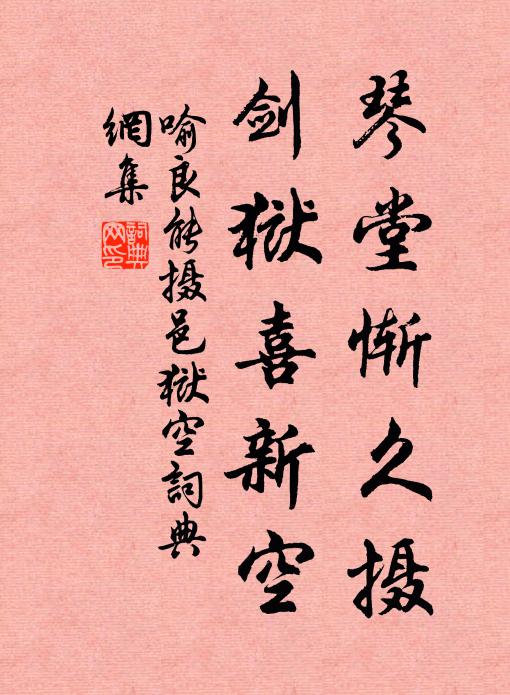 琴堂惭久摄
剑狱喜新空
喻良能摄邑狱空詞典
網集
詞典網印